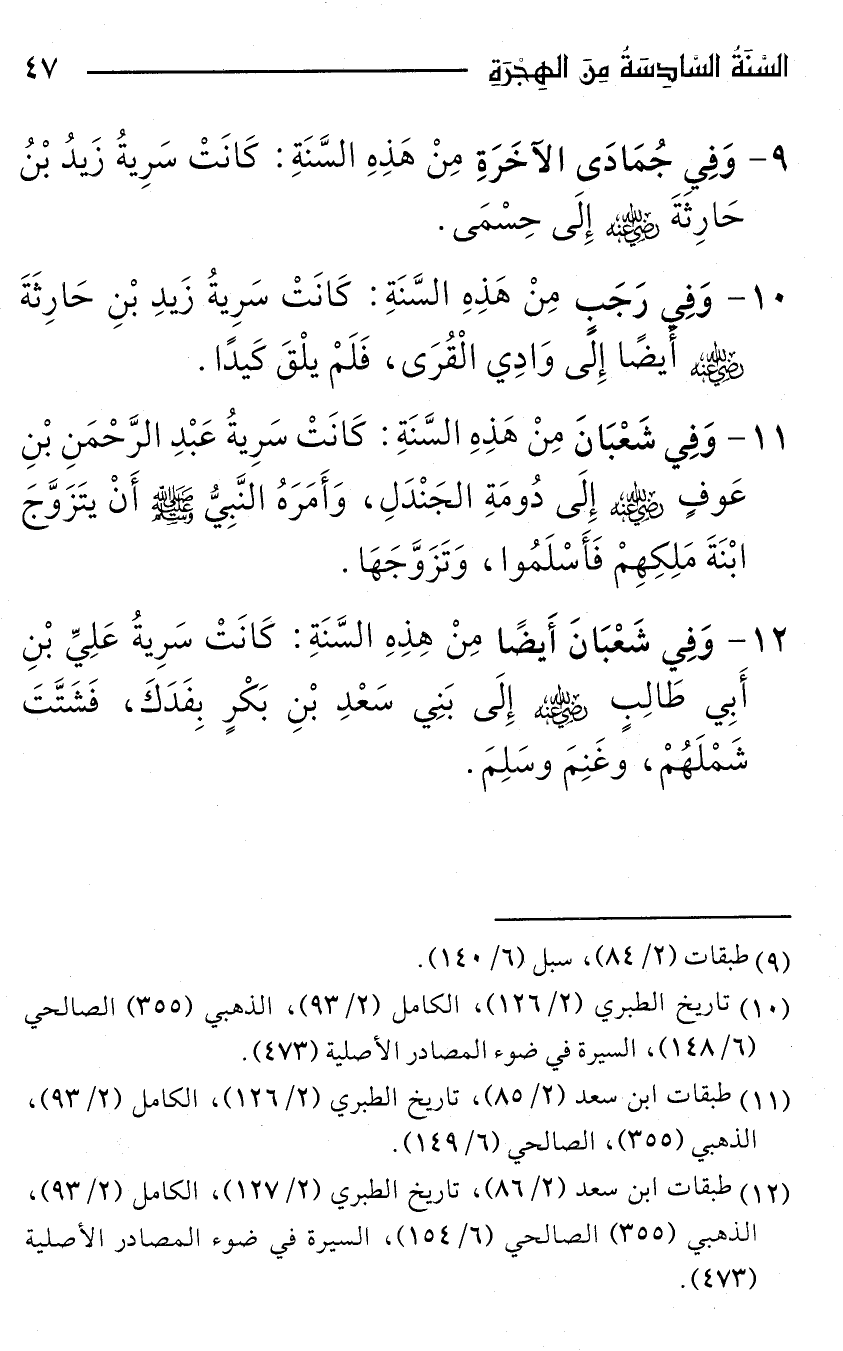 السَّنَةُ السَّادِسَةُ مِنَ الهِجْرَةِ ٤٧
٩- وَفِي جُمَادَى الآخَرَةِ مِنْ هَذِهِ السَّنَةِ: كَانَتْ سَرِيةُ زَيدُ بْنُ
حَارِثَةَ رضي الله عنه إِلَى حِسْمَى.
١٠- وَفِي رَجَبٍ مِنْ هَذِهِ السَّنَةِ: كَانَتْ سَرِيةُ زَيدِ بْنِ حَارِثَةَ
رضي الله عنه أَيضًا إِلَى وَادِي الْقُرَى، فَلَمْ يلْقَ كَيدًا.
١١- وَفِي شَعْبَانَ مِنْ هَذِهِ السَّنَةِ: كَانَتْ سَرِيةُ عَبْدِ الرَّحْمَنِ بْنِ
عَوفٍ رضي الله عنه إِلَى دُومَةِ الجَنْدَلِ، وَأَمَرَهُ النَّبِيُّ ﷺ أَنْ يتَزَوَّجَ
ابْنَةَ مَلِكِهِمْ فَأَسْلَمُوا، وَتَزَوَّجَهَا.
١٢- وَفِي شَعْبَانَ أَيضًا مِنْ هِذِهِ السَّنَةِ: كَانَتْ سَرِيةُ عَلِيِّ بْنِ
أَبِي طَالِبٍ رضي الله عنه إِلَى بَنِي سَعْدِ بْنِ بَكْرٍ بِفَدَكَ، فَشَتَّتَ
شَمْلَهُمْ، وغَنِمَ وسَلِمَ.
(٩) طبقات (٢/ ٨٤)، سبل (٦/ ١٤٠).
(١٠) تاريخ الطبري (٢/ ١٢٦)، الكامل (٢/ ٩٣)، الذهبي (٣٥٥) الصالحي
(٦/ ١٤٨)، السيرة في ضوء المصادر الأصلية (٤٧٣).
(١١) طبقات ابن سعد (٢/ ٨٥)، تاريخ الطبري (٢/ ١٢٦)، الكامل (٢/ ٩٣)،
الذهبي (٣٥٥)، الصالحي (٦/ ١٤٩).
(١٢) طبقات ابن سعد (٢/ ٨٦)، تاريخ الطبري (٢/ ١٢٧)، الكامل (٢/ ٩٣)،
الذهبي (٣٥٥) الصالحي (٦/ ١٥٤)، السيرة في ضوء المصادر الأصلية
(٤٧٣).